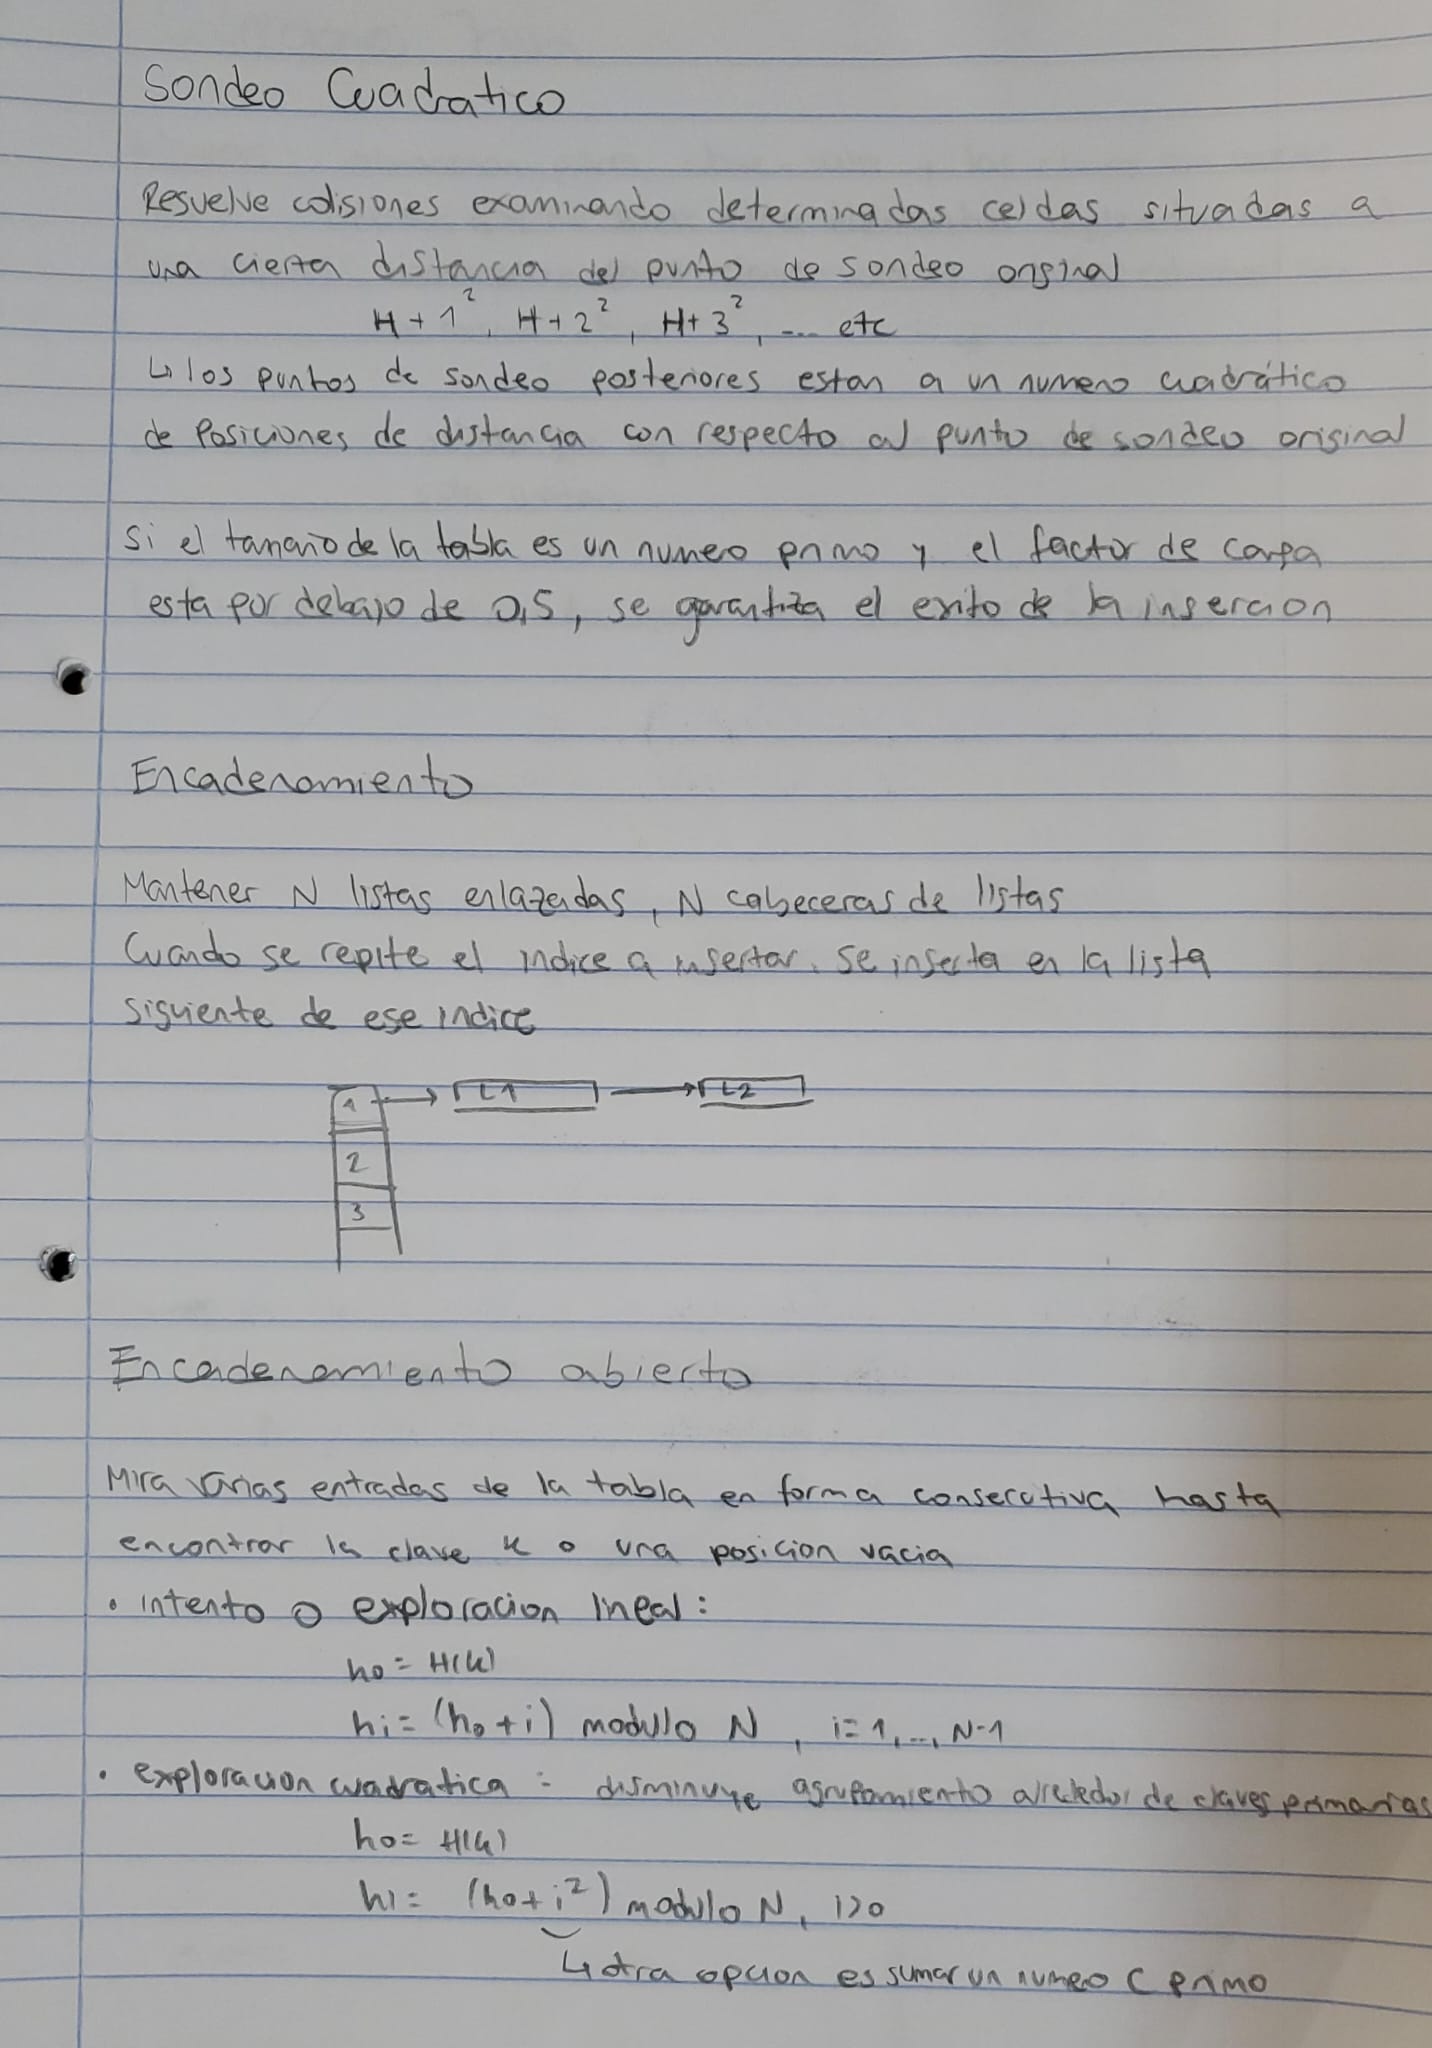 Sondeo Cuadratico
Resuelve colisiones examinando determinadas celdas situadas a
una cierta distancia del punto de sondeo original
H + 1², H + 2², H + 3², .... etc
↳ los puntos de sondeo posteriores estan a un numero cuadrático
de Posiciones de distancia con respecto al punto de sondeo original
Si el tamaño de la tabla es un numero primo y el factor de carga
esta por debajo de 0,5, se garantiza el exito de la insercion
Encadenamiento
Mantener N listas enlazadas, N cabeceras de listas
Cuando se repite el indice a insertar. Se inserta en la lista
siguiente de ese indice
1 → L1 → L2
2
3
Encadenamiento abierto
Mira varias entradas de la tabla en forma consecutiva hasta
encontrar la clave k o una posicion vacia
• intento o exploracion lineal:
h0 = H(k)
hi = (h0 + i) modulo N, i = 1, ..., N-1
• exploracion cuadratica = disminuye agrupamiento alrededor de claves primarias
h0 = H(k)
hi = (h0 + i²) modulo N, i>0
↳ otra opcion es sumar un numero C primo